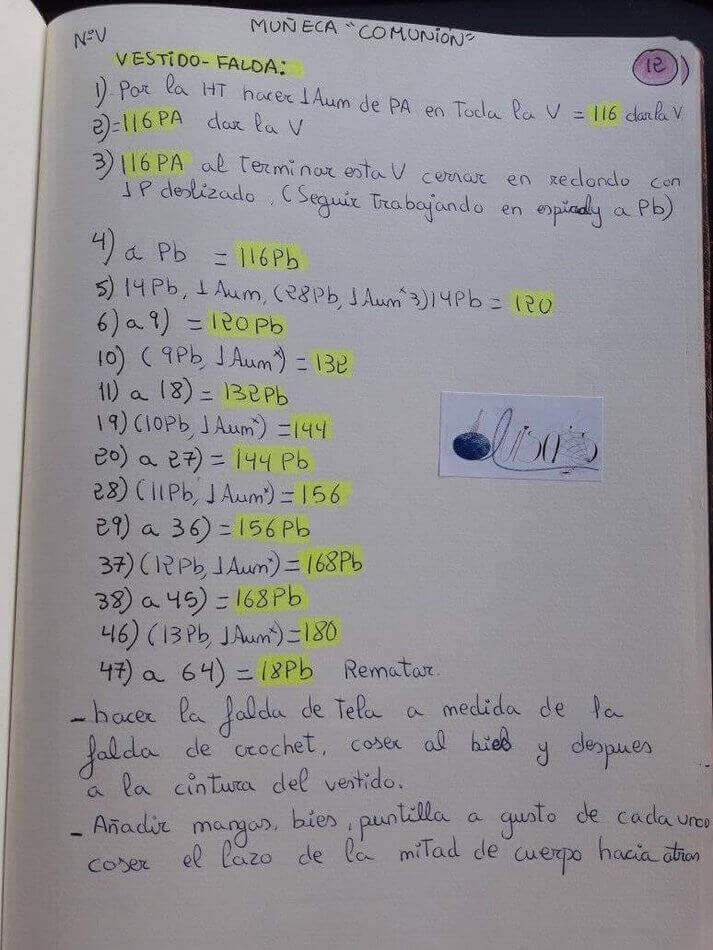 NºV
MUÑECA "COMUNIÓN"
12
VESTIDO-FALDA:
1) Por la HT hacer 1Aum de PA en Toda la V = 116 dar la V
2)=116PA dar la V
3) 116PA al Terminar esta V cerrar en redondo con
1P deslizado. (Seguir Trabajando en a Pb)
4) a Pb = 116Pb
5) 14Pb, 1Aum, (28Pb, 1Aum*3)14Pb = 120
6) a 9) = 120Pb
10) (9Pb, 1Aum*) = 132
11) a 18) = 132Pb
19) (10Pb, 1Aum*) =144
20) a 27) = 144 Pb
28) (11Pb, 1Aum*) = 156
29) a 36) = 156Pb
37) (12Pb, 1Aum*) = 168Pb
38) a 45) = 168Pb
46) (13Pb, 1Aum*) = 180
47) a 64) = 18Pb Rematar.
- hacer la falda de Tela a medida de la
falda de crochet, coser al bies y despues
a la cintura del vestido.
- Añadir mangas, bies, puntilla a gusto de cada uno
coser el lazo de la mitad de cuerpo hacia atras